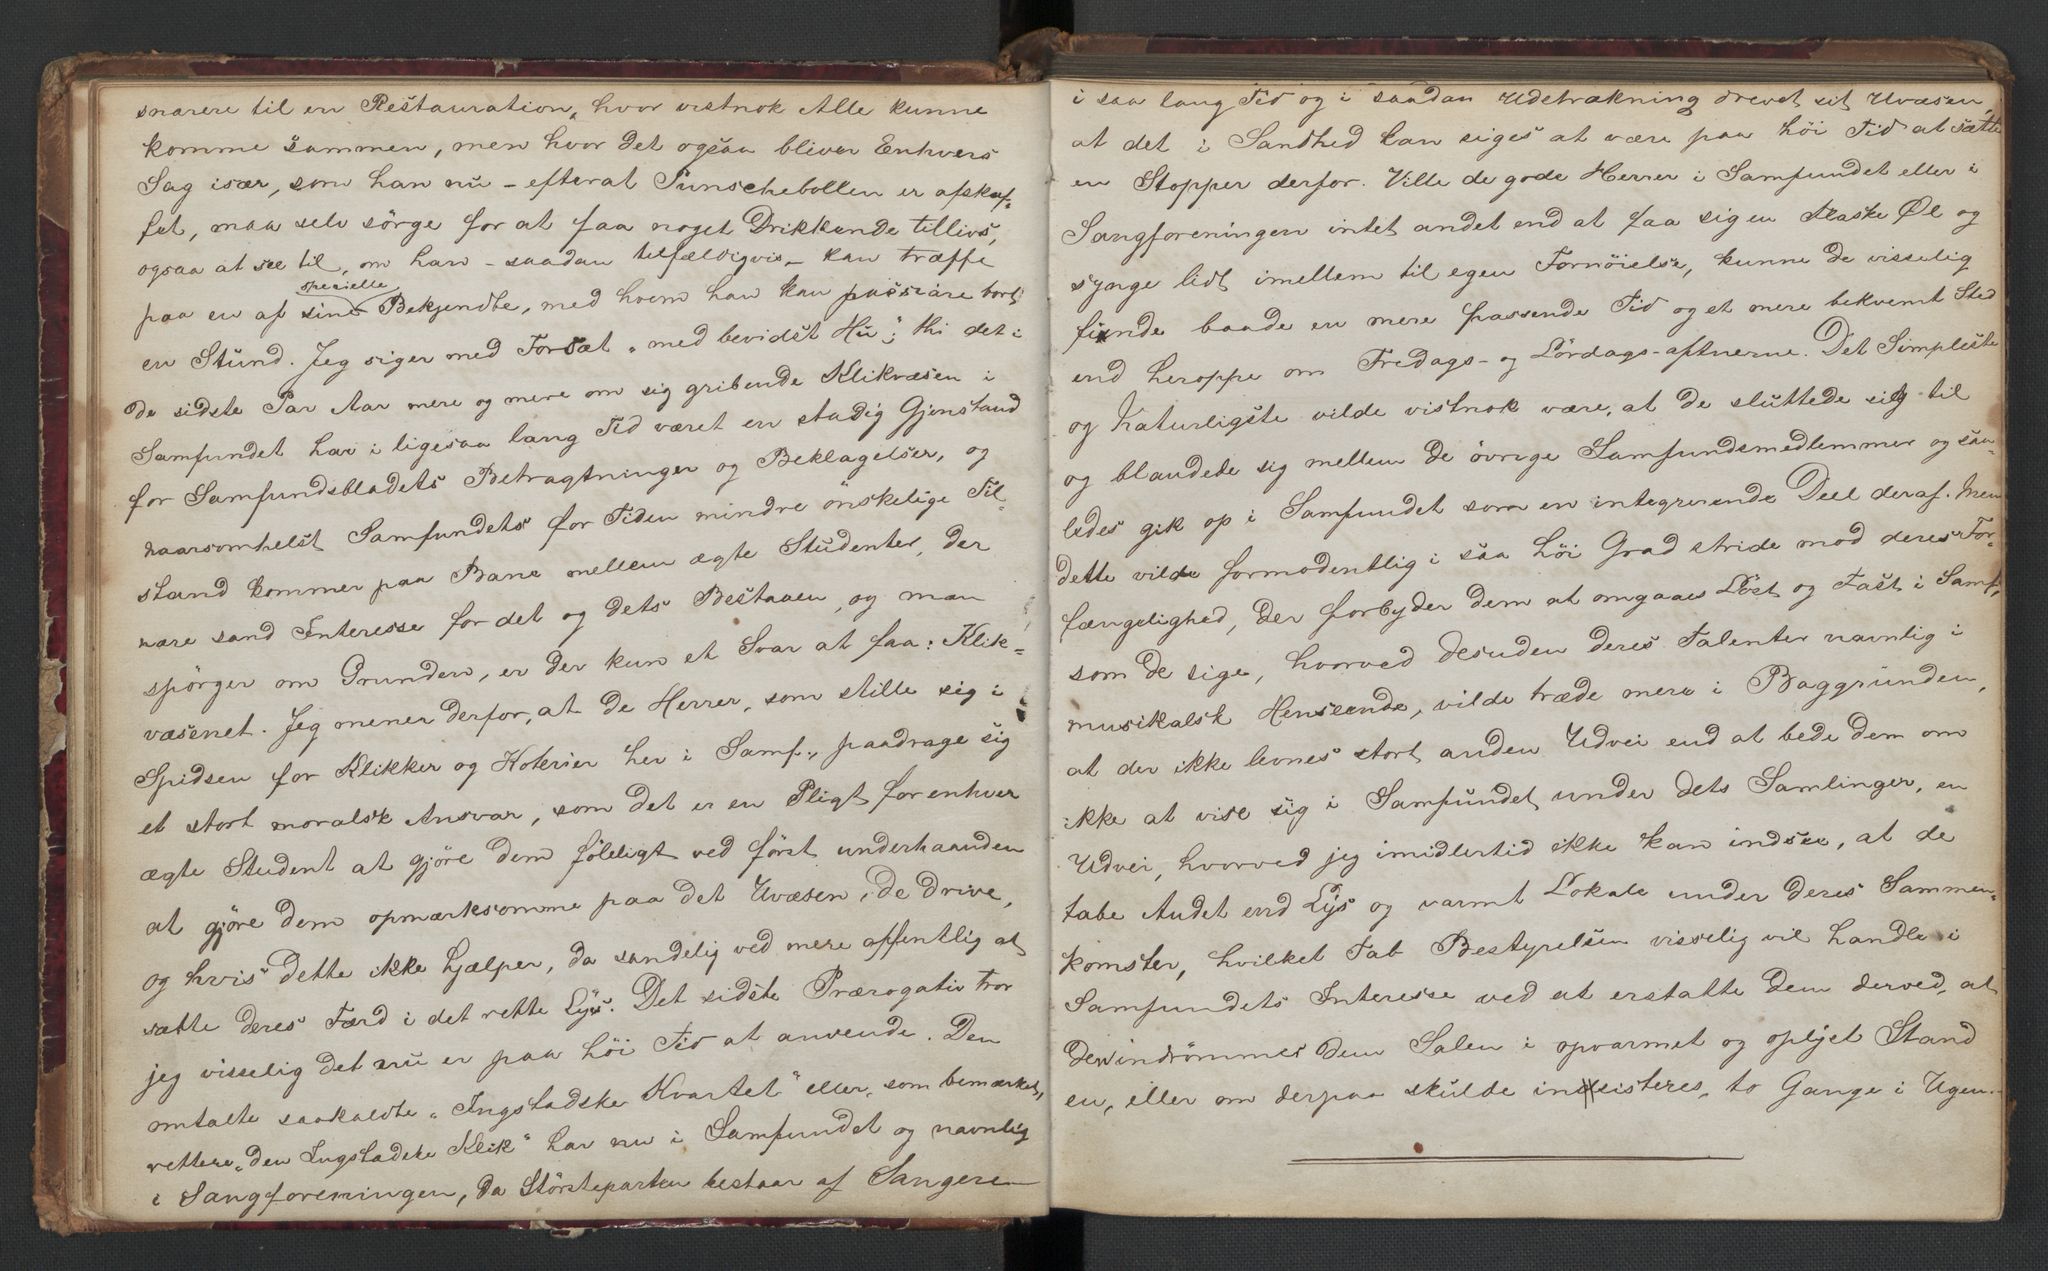 snarere til en Restauration, hvor vistnok Alle kunne
komme sammen, men hvor det ogsaa bliver Enhvers
Sag især, som han nu – efterat Punschebollen er afskaf-
fet, maa selv sörge for at faa noget Drikkende tillivs,
ogsaa at see til, om han – saadan tilfældigvis – kan træffe
specielle
paa en af sine Bekjendte, med hvem han kan passiare bort
en Stund. Jeg siger med Forsæt „med bevidst Hu“; thi det i
de sidste Par Aar mere og mere om sig gribende Klikvæsen i
Samfundet har i ligesaa lang Tid været en stadig Gjenstand
for Samfundsbladets Betragtninger og Beklagelser, og
naarsomhelst Samfundets for Tiden mindre önskelige Til-
stand kommer paa Bane mellem ægte Studenter, der
nære sand Interesse for det og dets Bestaaen, og man
spörger om Grunden, er der kun et Svar at faa: Klik-
væsenet. Jeg mener derfor, at de Herrer, som stille sig i
Spidsen for Klikker og Koterier her i Samf., paadrage sig
et stort moralsk Ansvar, som det er en Pligt for enhver
ægte Student at gjöre dem föleligt ved först underhaanden
at gjöre dem opmærksomme paa det Uvæsen, de drive,
og hvis dette ikke hjælper, da sandelig ved mere offentlig at
sætte deres Færd i det rette Lys. Det sidste Prærogativ tror
jeg visselig det nu er paa höi Tid at anvende. Den
omtalte saakaldte „Ingstadske Kvartet“ eller, som bemærket,
rettere „den Ingstadske Klik“ har nu i Samfundet og navnlig
i Sangforeningen, da Störsteparten bestaar af Sangere
i saa lang Tid og i saadan Udstrækning drevet sit Uvæsen,
at det i Sandhed kan siges at være paa höi Tid at sætte
en Stopper derfor. Ville de gode Herrer i Samfundet eller i
Sangforeningen intet andet end at faa sig en Flaske Øl og
synge lidt imellem til egen Fornöielse, kunne de visselig
finde baade en mere passende Tid og et mere bekvemt Sted
end heroppe om Fredags- og Lördags-aftnerne. Det Simpleste
og Naturligste vilde vistnok være, at de sluttede sig til
og blandede sig mellem de övrige Samfundsmedlemmer og saa-
ledes gik op i Samfundet som en integrerende Deel deraf. Men
dette vilde formodentlig i saa höi Grad stride mod deres For-
fængelighed, der forbyder dem at omgaaes Löst og Fast i Samf.,
som de sige, hvorved desuden deres Talenter navnlig i
musikalsk Henseende, vilde træde mere i Baggrunden,
at der ikke levnes stort anden Udvei end at bede dem om
ikke at vise sig i Samfundet under dets Samlinger, en
Udvei, hvorved jeg imidlertid ikke kan indsee, at de
tabe Andet end Lys og varmt Lokale under deres Sammen-
komster, hvilket Tab Bestyrelsen visselig vil handle i
Samfundets Interesse ved at erstatte dem derved, at
der indrömmes dem Salen i opvarmet og oplyst Stand
en, eller om derpaa skulde insisteres, to Gange i Ugen.